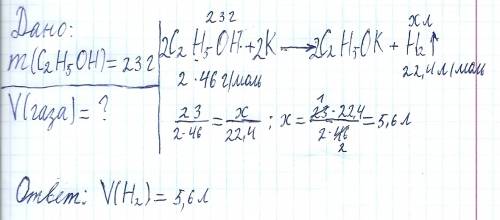 Дано:
m(C₂H₅OH)=23г
V(газа)=?
23г xл
2C₂H₅OH+2K→2C₂H₅OK+H₂↑
2·46г/моль 22,4л/моль
23/2·46=x/22,4; x=23·22,4/2·46=5,6л
1
2
Ответ: V(H₂)=5,6л